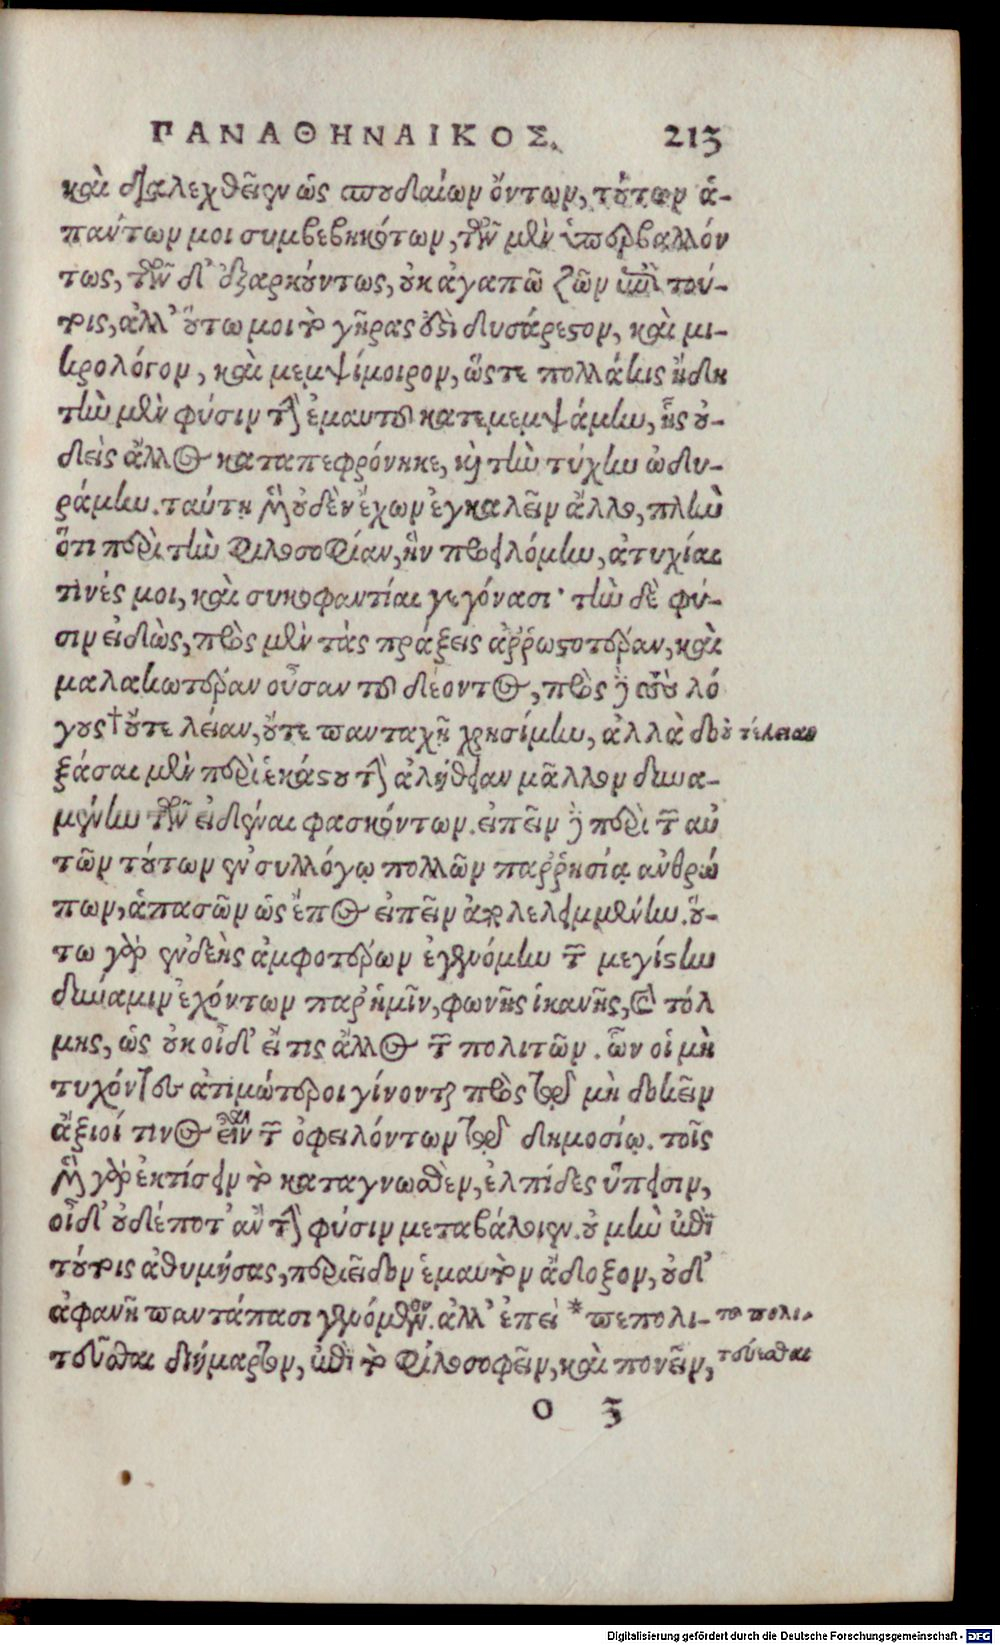 ΠΑΝΑΘΗΝΑΙΚΟΣ. 213
καὶ διαλεχθεῖεν ὡς σπουδαίων ὄντων, τούτων ἁ-
πάντων μοι συμβεβηκότων, τῶν μὲν ὑπερβαλλόν
τως, τῶν δ' ἐξαρκούντως, οὐκ ἀγαπῶ ζῶν ἐπὶ τού-
τοις, ἀλλ' οὕτω μοι τὸ γῆράς ἐστι δυσάρεστον, καὶ μι-
κρολόγον, καὶ μεμψίμοιρον, ὥστε πολλάκις ἤδη
τὴν μὲν φύσιν τὴν ἐμαυτοῦ κατεμεμψάμην, ἧς οὐ-
δεὶς ἄλλος καταπεφρόνηκε, καὶ τὴν τύχην ὠδυ-
ράμην. ταύτῃ μὲν οὐδὲν ἔχων ἐγκαλεῖν ἄλλο, πλὴν
ὅτι περὶ τὴν φιλοσοφίαν, ἣν προειλόμην, ἀτυχίαι
τινές μοι, καὶ συκοφαντίαι γεγόνασι· τὴν δὲ φύ-
σιν εἰδὼς, πρὸς μὲν τὰς πράξεις ἀῤῥωστοτέραν, καὶ
μαλακωτέραν οὖσαν τοῦ δέοντος, πρὸς δὲ τοὺς λό
γους† οὔτε λείαν, οὔτε πανταχῆ χρησίμην, ἀλλὰ δο
τέλειαν
ξάσαι μὲν περὶ ἑκάστου τὴν ἀλήθειαν μᾶλλον δυνα-
μένην τῶν εἰδέναι φασκόντων. εἰπεῖν δὲ περὶ τῶν αὐ
τῶν τούτων ἐν συλλόγῳ πολλῶν παῤῥησίᾳ ἀνθρώ
πων, ἁπασῶν ὡς ἔπος εἰπεῖν ἀπολελειμμένην. οὕ-
τω γὰρ ἐνδεὴς ἀμφοτέρων ἐγενόμην τῶν μεγίστην
δύναμιν ἐχόντων παρ' ἡμῖν, φωνῆς ἱκανῆς, καὶ τόλ
μης, ὡς οὐκ οἶδ' εἴ τις ἄλλος τῶν πολιτῶν. ὧν οἱ μὴ
τυχόντες ἀτιμώτεροι γίνονται πρὸς τὸ μὴ δοκεῖν
ἄξιοί τινος εἶναι τῶν ὀφειλόντων τῷ δημοσίῳ. τοῖς
μὲν γὰρ ἐκτίσειν τὸ καταγνωσθὲν, ἐλπίδες ὕπεισιν,
οἱ δ' οὐδέποτ' ἂν τὴν φύσιν μεταβάλοιεν. οὐ μὴν ἐπὶ
τούτοις ἀθυμήσας, περιεῖδον ἐμαυτὸν ἄδοξον, οὐδ'
ἀφανῆ παντάπασι γενόμενον. ἀλλ' ἐπεὶ * πεπολι-
τοῦ πολι-
τεῦσθαι διήμαρτον, ἐπὶ τὸ φιλοσοφεῖν, καὶ πονεῖν,
τεύεσθαι
O 3
Digitalisierung gefördert durch die Deutsche Forschungsgemeinschaft - DFG